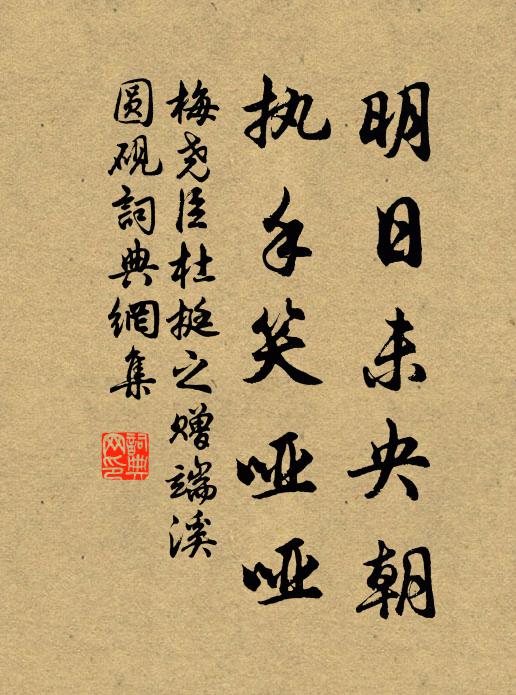 明日未央朝
执手笑哑哑
梅尧臣杜挺之赠端溪
圆砚詞典網集
詞典网印